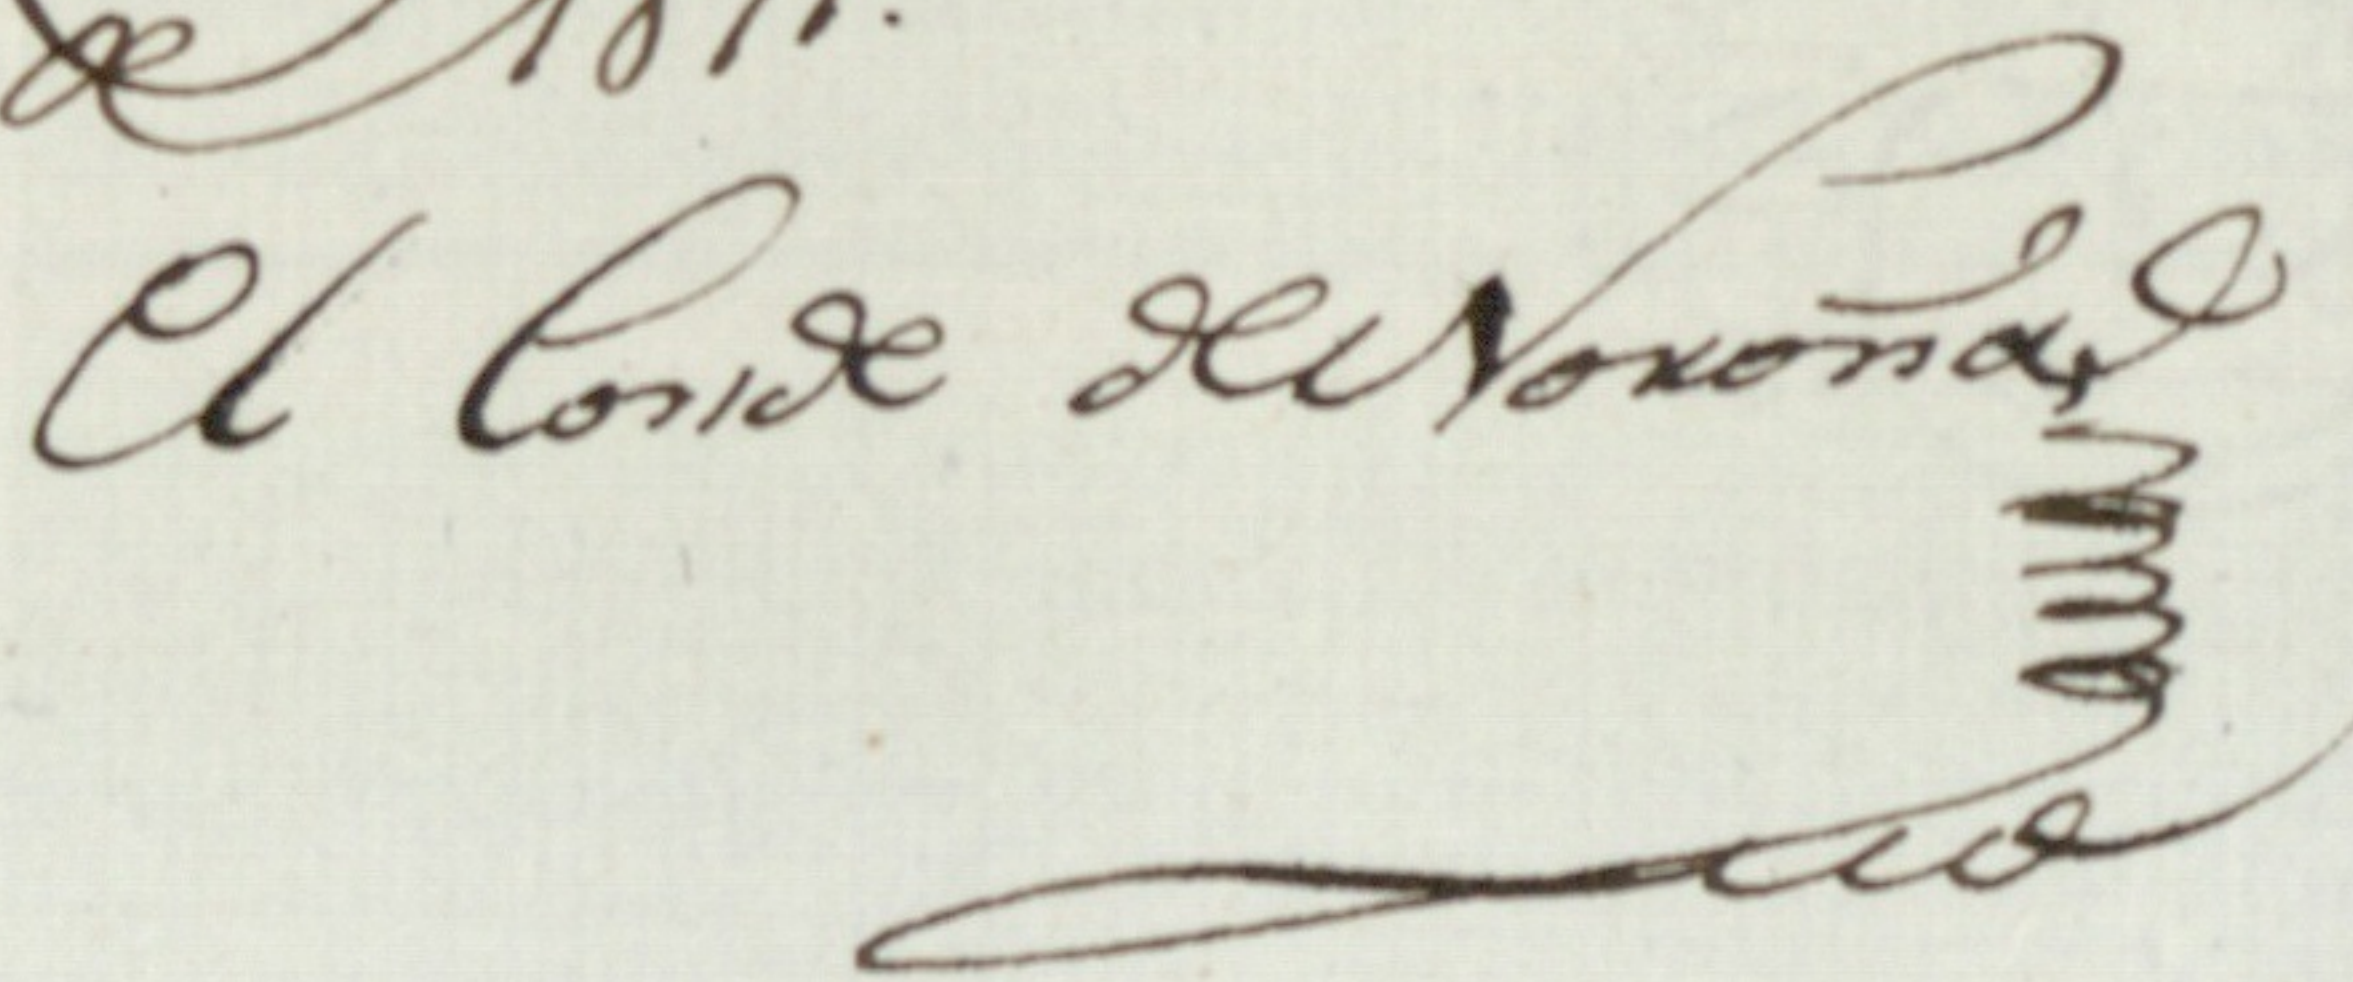 de 1811.
El Conde de Noroña